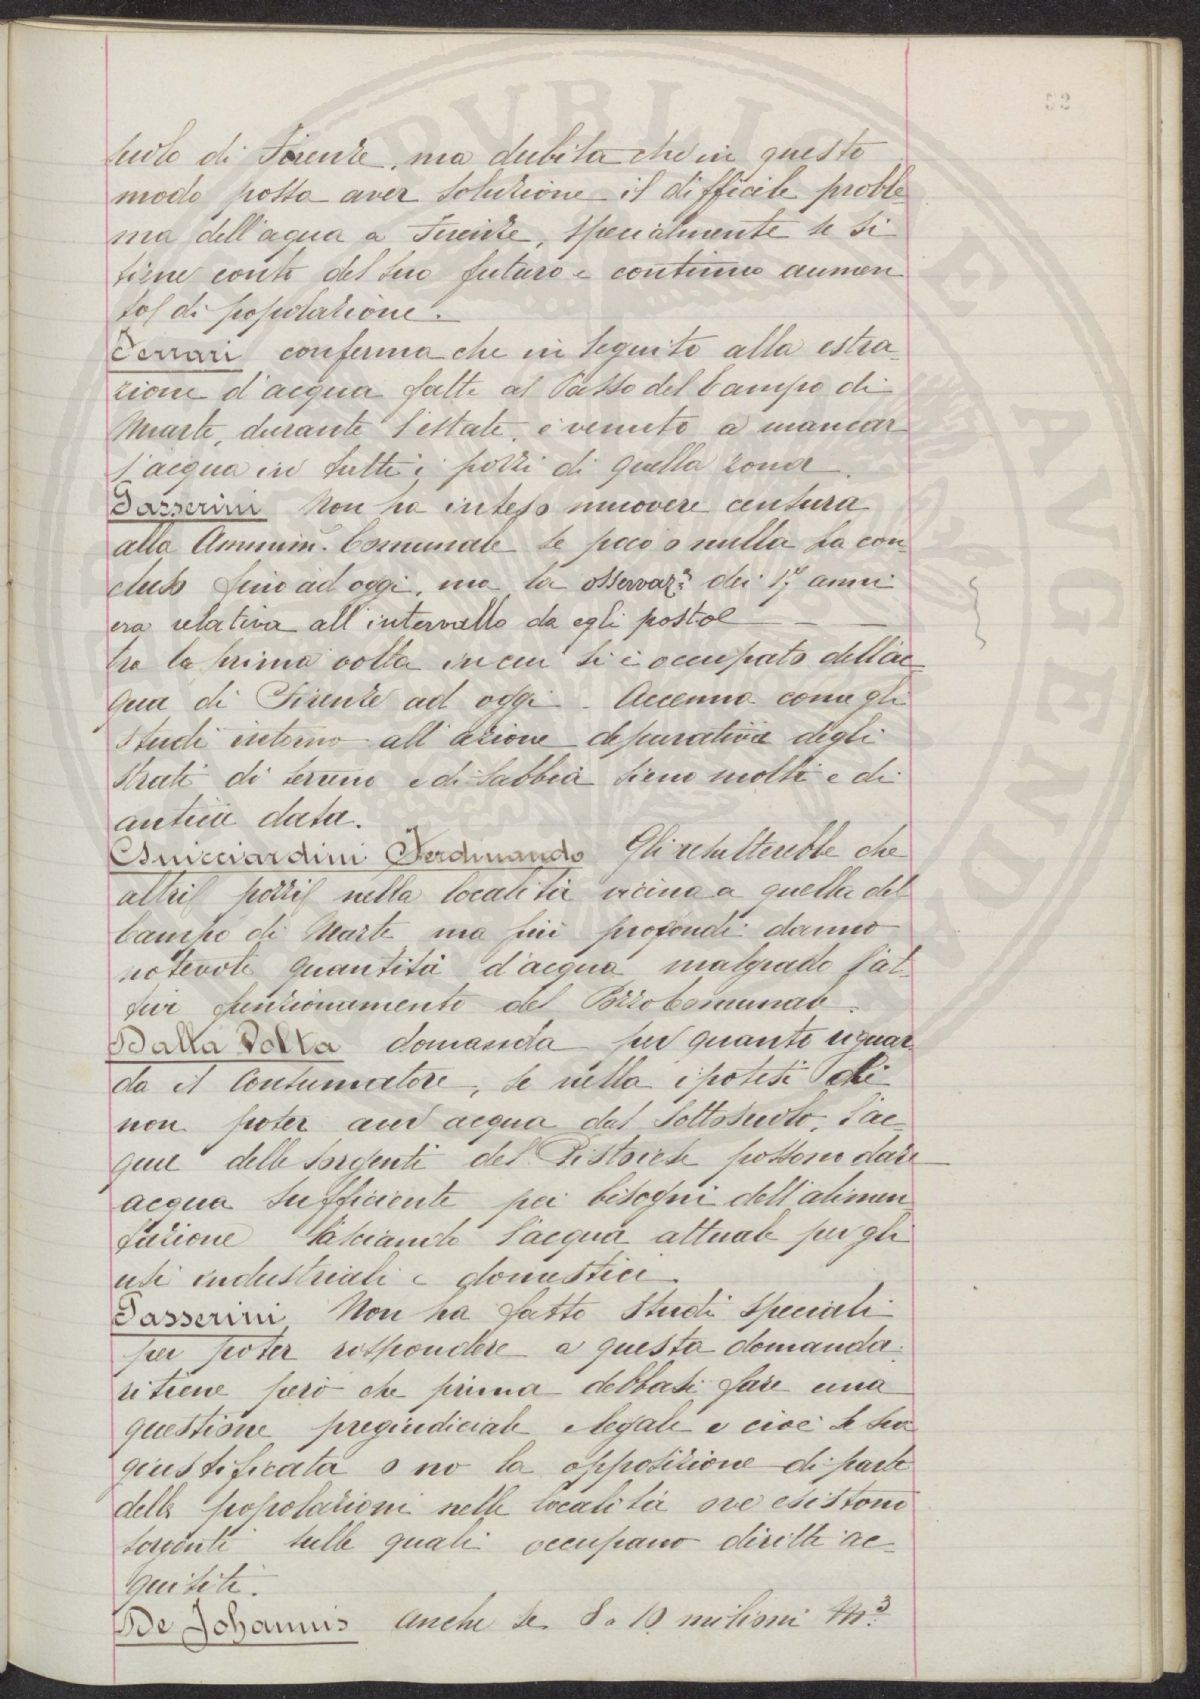 suolo di Firenze, ma dubita che in questo
modo possa aver soluzione il difficile proble
ma dell'aqua a Firenze, specialmente se si
tiene conto del suo futuro e continuo aumen
to di popolazione.
Ferrari conferma che in seguito alla estra-
zione d'acqua fatta al Pozzo del Campo di
Marte, durante l'estate, è venuto a mancar
l'acqua in tutti i pozzi di quella zona.
Passerini Non ha inteso muovere censura
alla Ammin.e Comunale se poco o nulla ha con-
cluso fino ad oggi, ma la osservaz.e dei 17 anni
era relativa all'intervallo da egli posto
tra la prima volta in cui si è occupato dell'ac-
qua di Firenze ad oggi. Accenna come gli
studi intorno all'azione depurativa degli
strati di terreno e di sabbia sieno molti e di
antica data.
Guicciardini Ferdinando Gli resulterebbe che
altri pozzi nella località vicina a quella del
Campo di Marte ma più profondi danno
notevole quantità d'acqua malgrado l'at-
tivo funzionamento del Pozzo Comunale.
Dalla Volta domanda per quanto riguar
da il Consumatore, se nella ipotesi di
non poter aver acqua dal sottosuolo, l'ac-
que delle sorgenti del Pistoiese possono dare
acqua sufficiente pei bisogni dell'alimen
tazione lasciando l'acqua attuale per gli
usi industriali e domestici.
Passerini Non ha fatto studi speciali
per poter rispondere a questa domanda:
ritiene però che prima debbasi fare una
questione pregiudiciale e legale e cioè se sia
giustificata o no la opposizione di parte
delle popolazioni nelle località ove esistono
sorgenti sulle quali occupano diritti ac-
quisiti.
De Johannis anche se 8 o 10 milioni M³